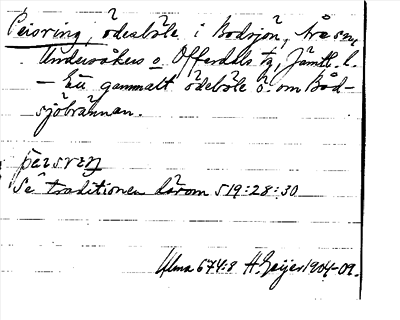 Peisring, ödesböle i Bodsjön, trås
Undersåkers o. Offerdals tg, Jämtl. l.
— Ett gammalt ödeböle ö. om Bod-
sjöbrännan.
Se traditionen därom 519:28:30
Ulma 674:8 H Geijer 1904-09.